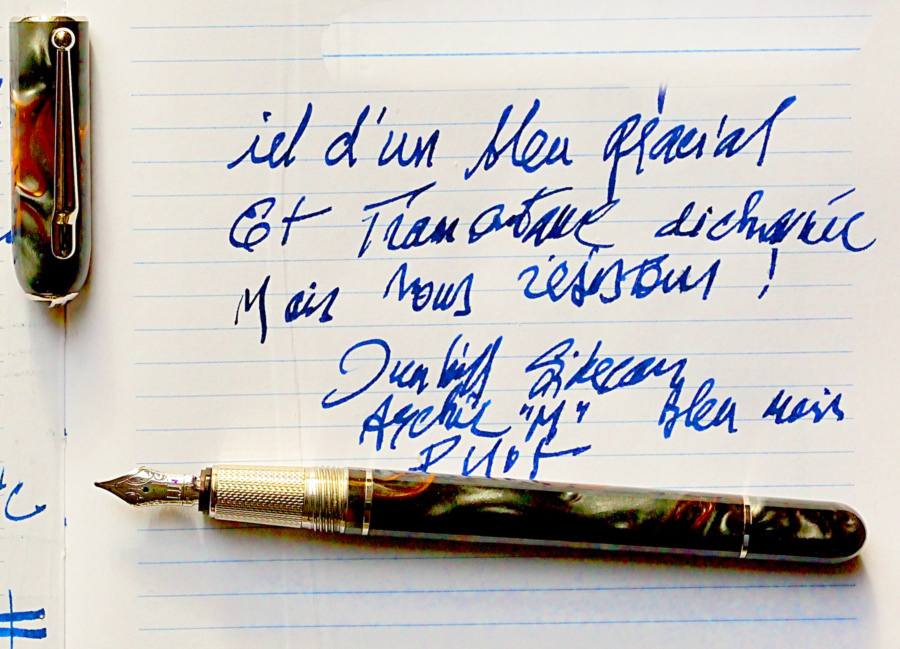 iel d'un bleu glacial
Et Tramontane déchaînée
Mais nous résistons !
Dunhill Sidecar
"M" Bleu noir
Pilot